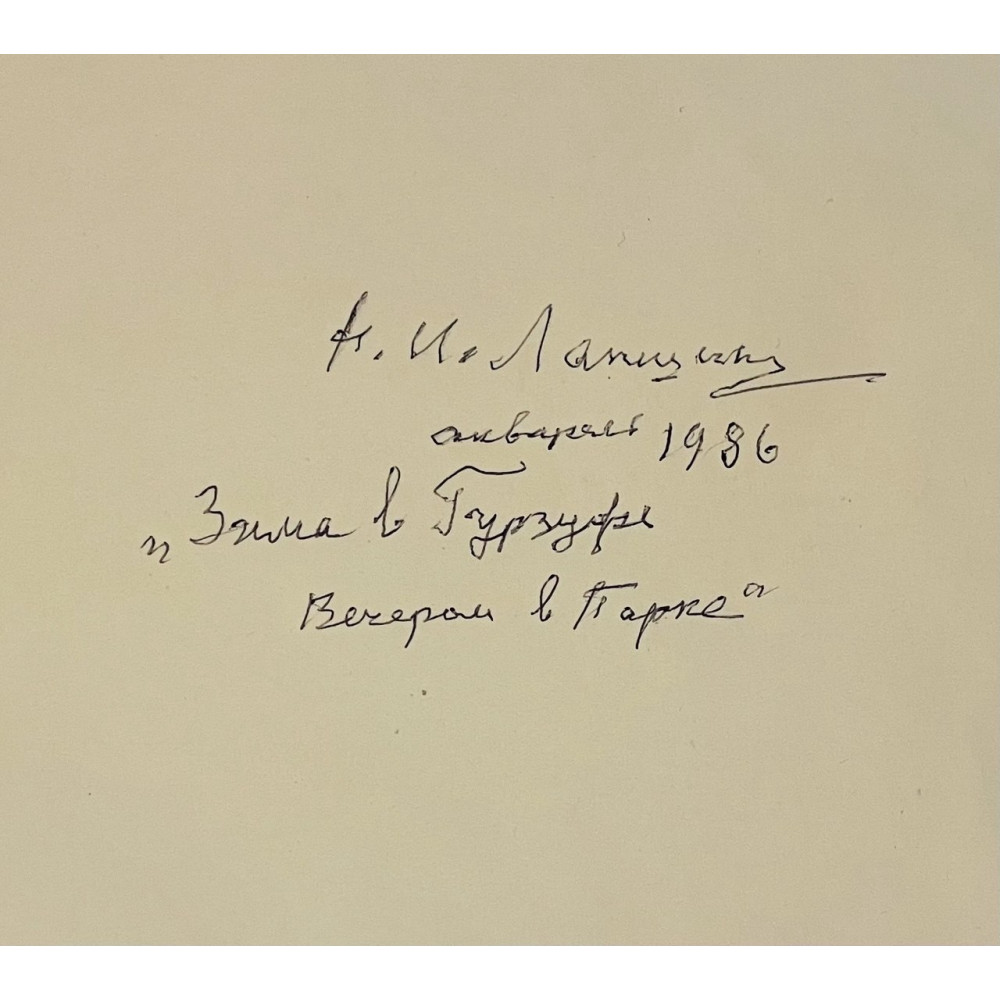 Н. И. Лапшин
акварель 1986
„Зима в Гурзуфе
Вечером в Парке“